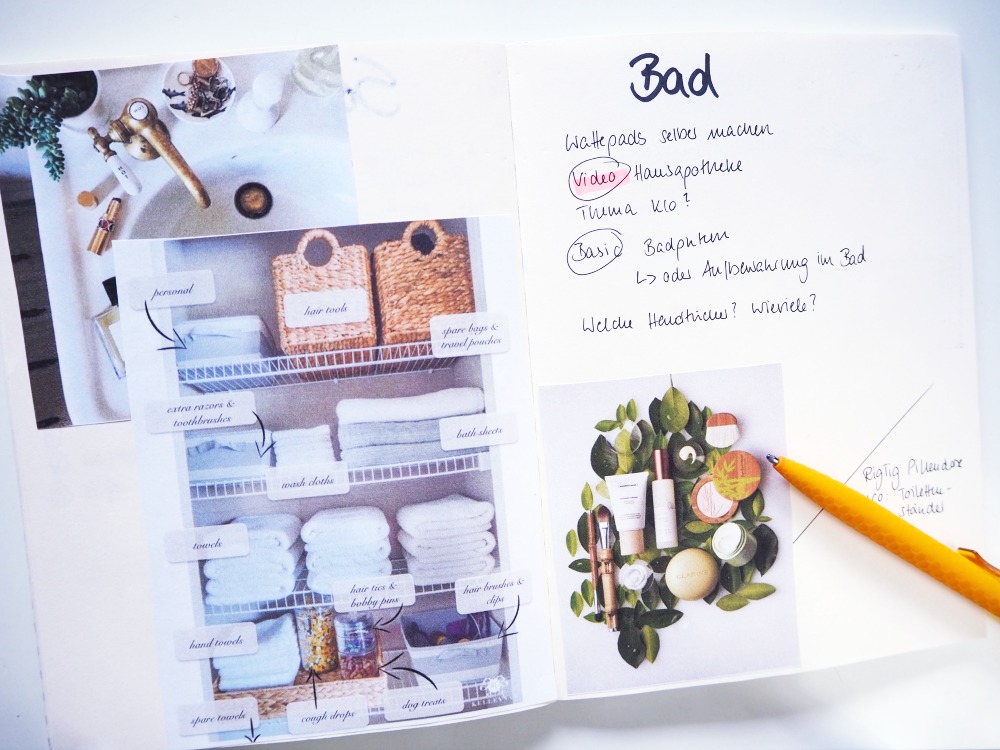 personal
hair tools
spare bags &
travel pouches
extra razors &
toothbrushes
bath sheets
wash cloths
towels
hair ties &
bobby pins
hair brushes &
clips
hand towels
spare towels
cough drops
dog treats
KELLEY
Bad
Wattepads selber machen
Video Hausapotheke
Thema Klo?
Basic Badputzen
↳ oder Aufbewahrung im Bad
Welche Handtücher? Wieviele?
Rigtig Pillendose
Toiletten-
ständer